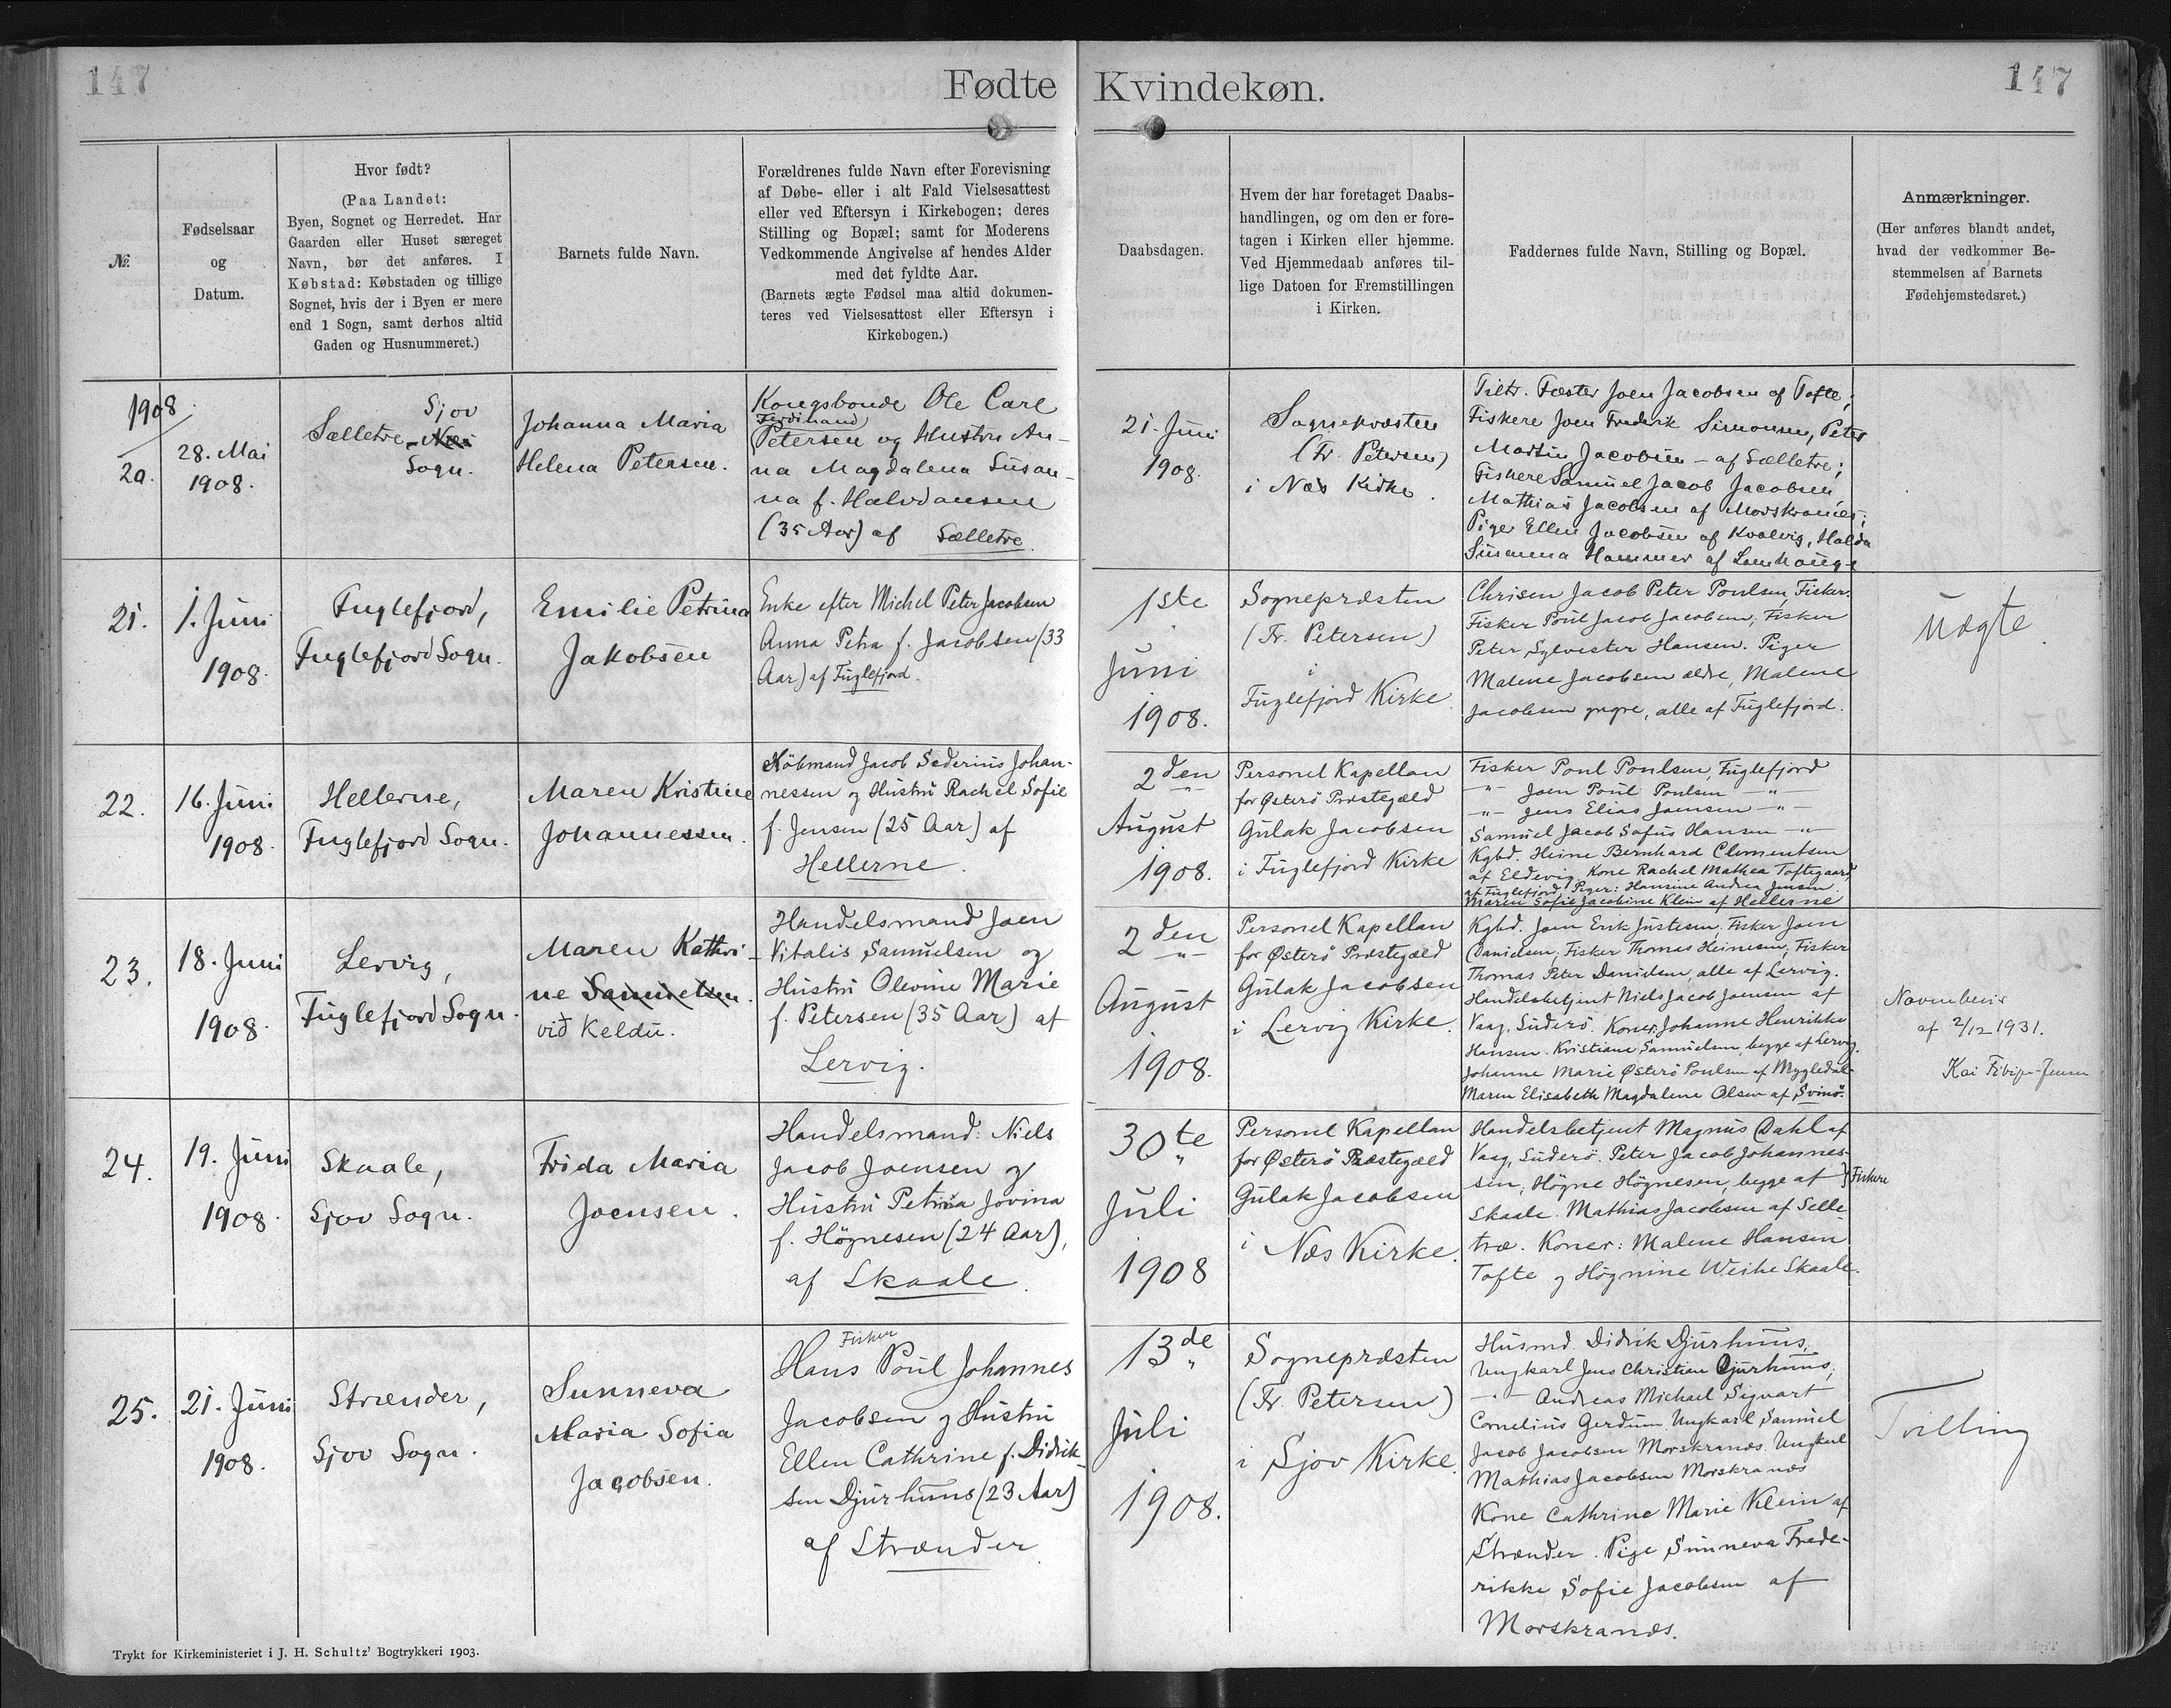 147
Fødte
Kvindekøn.
147
№.
Fødselsaar
og
Datum.
Hvor født?
(Paa Landet:
Byen, Sognet og Herredet. Har
Gaarden eller Huset særeget
Navn, bør det anføres. I
Købstad: Købstaden og tillige
Sognet, hvis der i Byen er mere
end 1 Sogn, samt derhos altid
Gaden og Husnummeret.)
Barnets fulde Navn.
Forældrenes fulde Navn efter Forevisning
af Døbe- eller i alt Fald Vielsesattest
eller ved Eftersyn i Kirkebogen; deres
Stilling og Bopæl; samt for Moderens
Vedkommende Angivelse af hendes Alder
med det fyldte Aar.
(Barnets ægte Fødsel maa altid dokumen-
teres ved Vielsesattest eller Eftersyn i
Kirkebogen.)
Daabsdagen.
Hvem der har foretaget Daabs-
handlingen, og om den er fore-
tagen i Kirken eller hjemme.
Ved Hjemmedaab anføres til-
lige Datoen for Fremstillingen
i Kirken.
Faddernes fulde Navn, Stilling og Bopæl.
Anmærkninger.
(Her anføres blandt andet,
hvad der vedkommer Be-
stemmelsen af Barnets
Fødehjemstedsret.)
1908
20.
28. Mai
1908.
Sjov
Sælletre - Næs
Sogn.
Johanna Maria
Helena Petersen.
Kongsbonde Ole Carl
Ferdinand
Petersen og Hustru An-
na Magdalena Susan-
na f. Halvdansen
(35 Aar) af Sælletre.
21. Juni
1908.
Sognepræsten
(Fr. Petersen)
i Næs Kirke.
Tiltr. Fæster Joen Jacobsen af Tofte;
Fiskere Joen Fredrik Simonsen, Peter
Martin Jacobsen - af Sælletre;
Fiskere Samuel Jacob Jacobsen,
Mathias Jacobsen af Morskranes;
Piger Ellen Jacobsen af Kvalvig, Halda
Susanna Hammer af Lamhauge
21.
1. Juni
1908.
Fuglefjord,
Fuglefjord Sogn.
Emilie Petrina
Jakobsen
Enke efter Michel Peter Jacobsen
Anna Petra f. Jacobsen (33
Aar) af Fuglefjord.
1ste
Juni
1908.
Sognepræsten
(Fr. Petersen)
i
Fuglefjord Kirke.
Chrisen Jacob Peter Poulsen, Fisker.
Fisker Poul Jacob Jacobsen, Fisker
Peter Sylvester Hansen. Piger
Malene Jacobsen ældre, Malene
Jacobsen yngre, alle af Fuglefjord.
Uægte.
22.
16. Juni
1908.
Hellerne,
Fuglefjord Sogn.
Maren Kristine
Johannessen.
Købmand Jacob Sederius Johan-
nessen og Hustru Rachel Sofie
f. Jensen (25 Aar) af
Hellerne.
2den
August
1908.
Personel Kapellan
for Østerö Præstegæld
Gulak Jacobsen
i Fuglefjord Kirke
Fisker Poul Poulsen, Fuglefjord
-"- Joen Poul Poulsen -"-
-"- Jens Elias Joensen -"-
Samuel Jacob Sofus Hansen -"-
Kgbd. Heine Bernhard Clementsen
af Eldevig. Kone Rachel Mathea Toftegaard
af Fuglefjord. Piger: Hansine Andrea Jensen.
Maren Sofie Jacobine Klein af Hellerne
23.
18. Juni
1908.
Lervig,
Fuglefjord Sogn.
Maren Kathri-
ne Samuelsen.
við Keldu.
Handelsmand Joen
Vitalis Samuelsen og
Hustru Olevine Marie
f. Petersen (35 Aar) af
Lervig.
2den
August
1908.
Personel Kapellan
for Østerö Præstegæld
Gulak Jacobsen
i Lervig Kirke.
Kgbd. Joen Erik Justesen, Fisker Joen
Danielsen, Fisker Thomas Heinesen, Fisker
Thomas Peter Danielsen, alle af Lervig.
Handelsbetjent Niels Jacob Joensen af
Vaag, Suderö. Koner: Johanne Henrikke
Hansen. Kristiane Samuelsen, begge af Lervig.
Johanne Marie Østerö Poulsen af Mygledal
Maren Elisabeth Magdalene Olsen af Svinö.
Navnebevis
af 2/12 1931.
24.
19. Juni
1908.
Skaale,
Sjov Sogn.
Frida Maria
Joensen.
Handelsmand: Niels
Jacob Joensen og
Hustru Petrina Jovina
f. Högnesen (24 Aar),
af Skaale.
30te
Juli
1908
Personel Kapellan
for Østerö Præstegæld
Gulak Jacobsen
i Næs Kirke.
Handelsbetjent Magnus Dahl af
Vaag, Suderö. Peter Jacob Johannes-
sen, Högne Högnesen, begge af } Fiskere
Skaale. Mathias Jacobsen af Selle-
træ. Koner: Malene Hansen
Tofte og Högnine Weihe Skaale.
25.
21. Juni
1908.
Strænder,
Sjov Sogn.
Sunneva
Maria Sofia
Jacobsen.
Fisker
Hans Poul Johannes
Jacobsen og Hustru
Ellen Cathrine f. Didrik-
sen Djurhuus (23 Aar)
af Strænder.
13de
Juli
1908.
Sognepræsten
(Fr. Petersen)
i Sjov Kirke.
Husmd. Didrik Djurhuus.
Ungkarl Jens Christian Djurhuus,
-"- Andreas Michael Sigvart
Cornelius Gerdum. Ungkarl Samuel
Jacob Jacobsen Morskranæs. Ungkarl
Mathias Jacobsen Morskranæs
Kone Cathrine Marie Klein af
Strænder. Pige Sunneva Frede-
rikke Sofie Jacobsen af
Morskranæs.
Tvilling
Trykt for Kirkeministeriet i J. H. Schultz' Bogtrykkeri 1903.